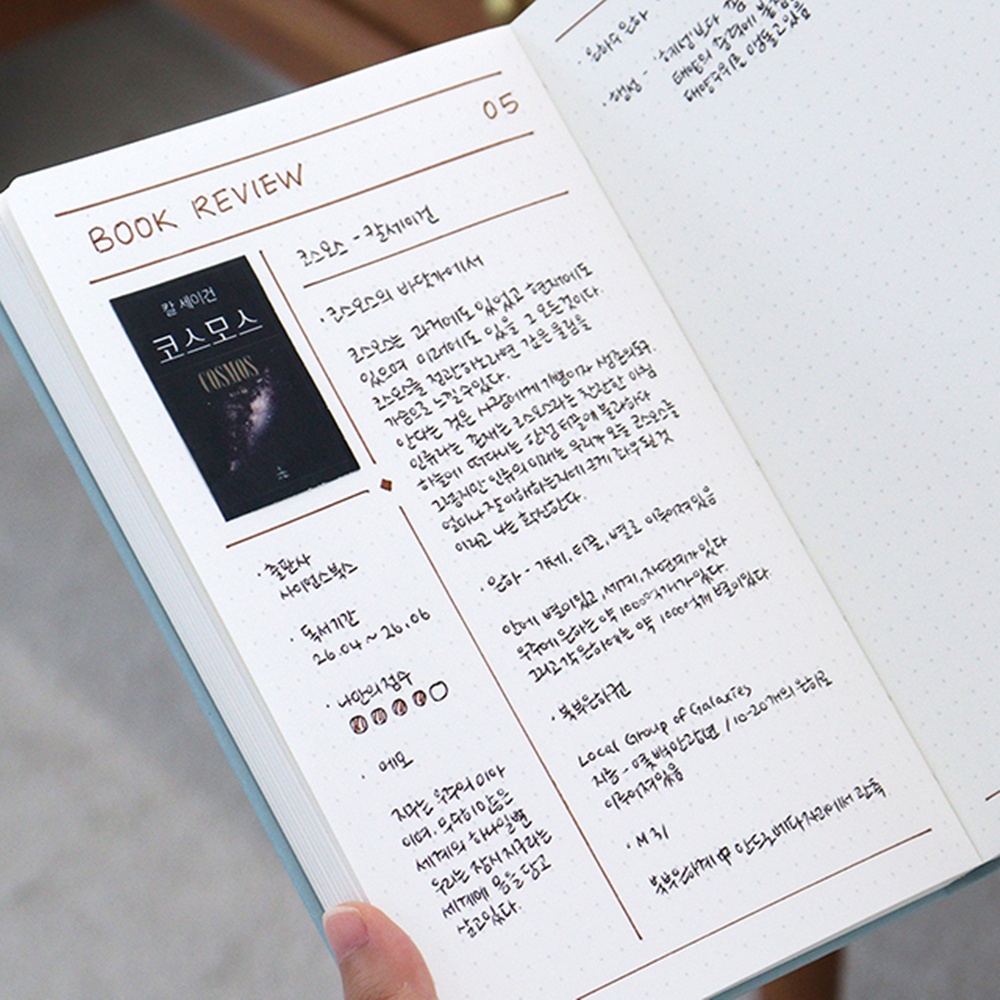 05
BOOK REVIEW
칼 세이건
코스모스
COSMOS
· 출판사
사이언스북스
· 독서기간
26.04 ~ 26.06
· 나만의 점수
· 메모
지구는 우주의 미아
이며, 우주의 만등은
세계의 하나일 뿐
우리는 잠시 지구라는
세계에 몸을 담고
살고있다.
코스모스 - 칼세이건
· 코스모스의 바닷가에서
코스모스는 과거에도 있었고 현재에도
있으며 미래에도 있을 그 모든것이다.
코스모스를 정관하노라면 깊은 울림을
가슴으로 느낄수있다.
안다는 것은 사람에게 기쁨이자 생존의도구.
인류라는 존재는 코스모스라는 찬란한 아침
하늘에 떠다니는 한점 티끌에 불과하다
그렇지만 인류의 미래는 우리가 오늘 코스모스를
얼마나 잘 이해하는지에 크게 좌우될것
이라고 나는 확신한다.
· 은하 - 기체, 티끌, 별로 이루어져있음
안에 별이있고, 세계, 자연계가있다
우주에 은하는 약 1000억개가있다.
그리고 각 은하에는 약 1000억개 별이있다.
· 국부은하권
Local Group of Galaxies
지름 - 몇백만광년 / 10-20개의 은하로
이루어져있음
· M 31
국부은하계 中 안드로메다자리에서 관측
· 은하수 은하
· 행성 - '혜성'보다
태양의 중력에
대양주위를 맴돌고있음